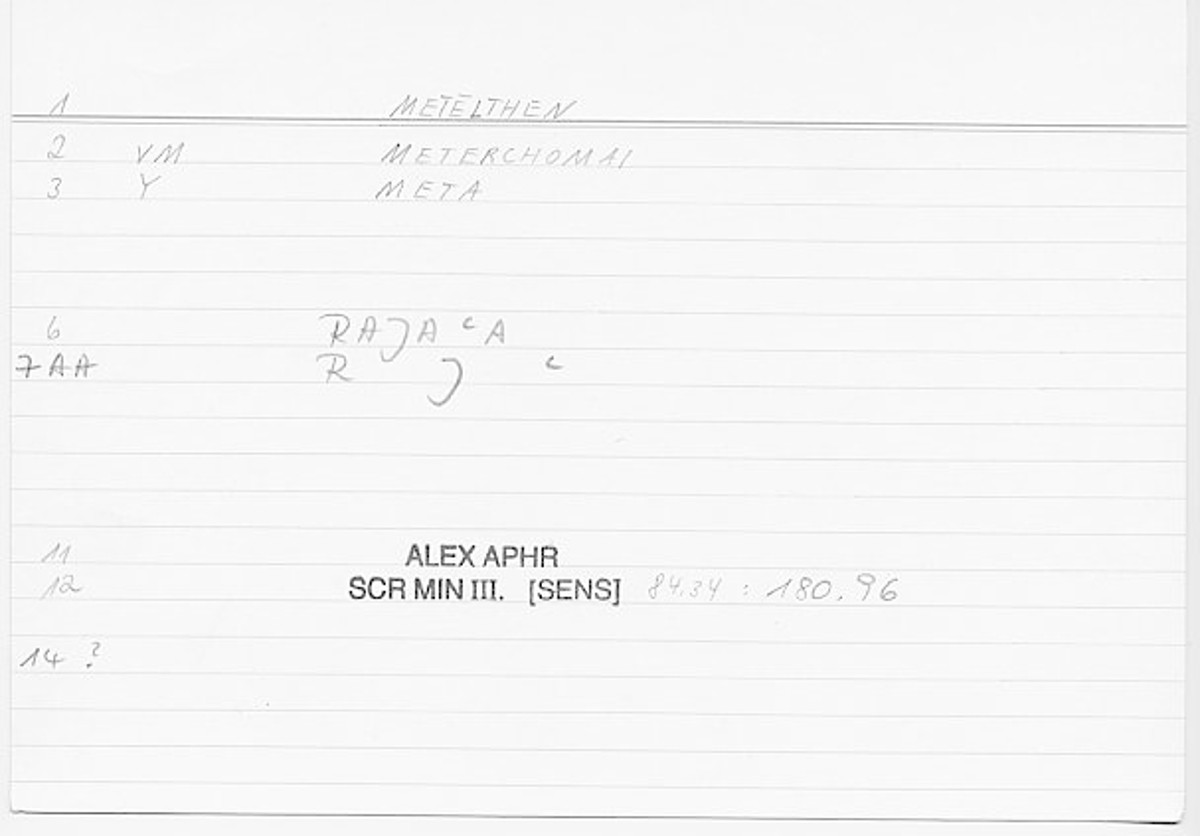 1 METĒLTHEN
2 VM METERCHOMAI
3 Y META
6 RAJA ᶜA
7AA R J ᶜ
11 ALEX APHR
12 SCR MIN III. [SENS] 84.34 : 180.96
14 ?